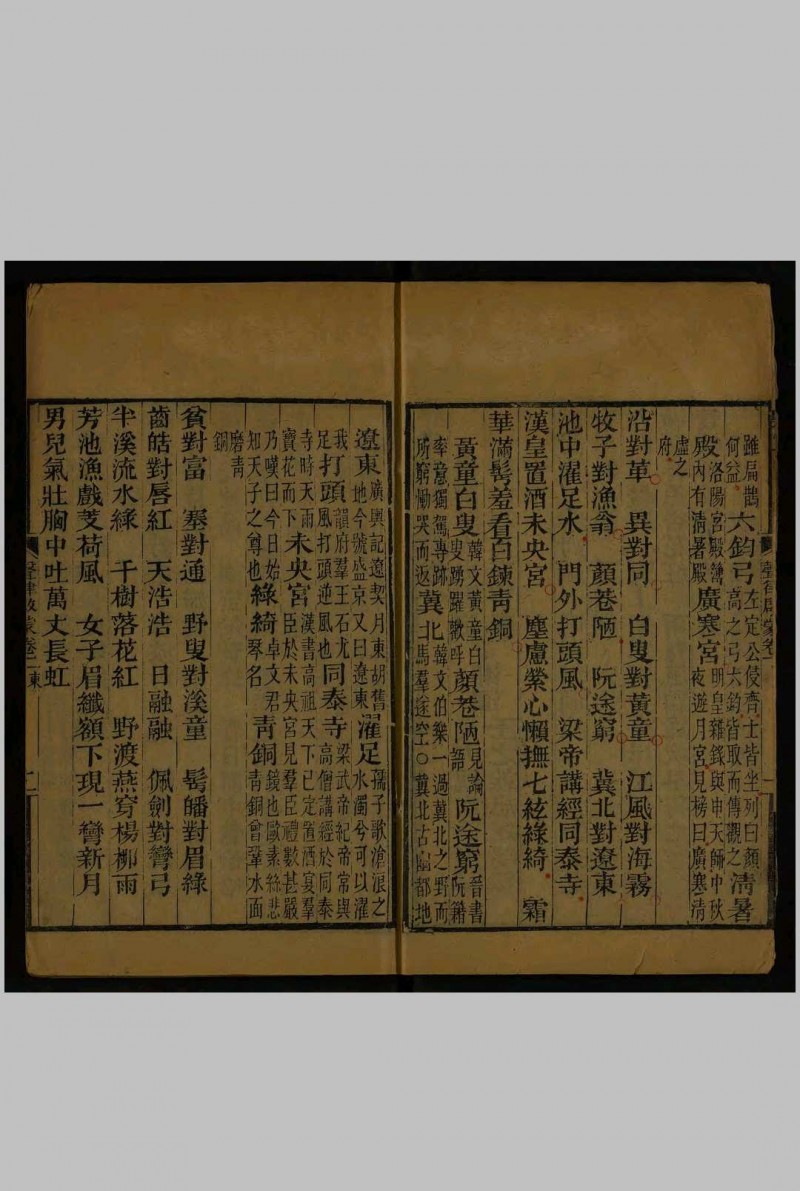 雖扁鵲何益　六鈞弓　左定公侵齊士皆坐列曰顏高之弓六鈞皆取而傳觀之　清暑
殿　洛陽宮殿簿內有清暑殿　廣寒宮　明皇雜錄與申天師中秋夜遊月宮見榜曰廣寒清
虛之府
沿對革　異對同　白叟對黃童　江風對海霧
牧子對漁翁　顏巷陋　阮途窮　冀北對遼東
池中濯足水　門外打頭風　梁帝講經同泰寺
漢皇置酒未央宮　塵慮縈心懶撫七絃綠綺　霜
華滿髩羞看白鍊青銅
黃童白叟　韓文黃童白叟踴躍歡呼　顏巷陋　見論語　阮途窮　晉書阮籍
率意獨駕專跡所窮慟哭而返　冀北　韓文伯樂一過冀北之野而馬羣遂空○冀北古臨都地
遼東　廣輿記遼契月東胡舊地今號盛京又曰遼東　濯足　孺子歌滄浪之水濁兮可以濯
我足　打頭　韻府羣王石尤風打頭逆風也　同泰寺　梁武帝紀帝常與高僧講經於同泰
寺時天雨寶花而下　未央宮　漢書高祖天下已定置酒宴羣臣於未央宮見羣臣禮數甚嚴
乃嘆曰今日始知天子之尊也　綠綺　卓文君琴名　青銅　鏡也歐素絲悲青銅曾鞏水面
磨青銅
貧對富　塞對通　野叟對溪童　髩皤對眉綠
齒皓對唇紅　天浩浩　日融融　佩劍對彎弓
半溪流水綠　千樹落花紅　野渡燕穿楊柳雨
芳池漁戲芰荷風　女子眉纖額下現一彎新月
男兒氣壯胸中吐萬丈長虹
聲律啟蒙卷一東　二